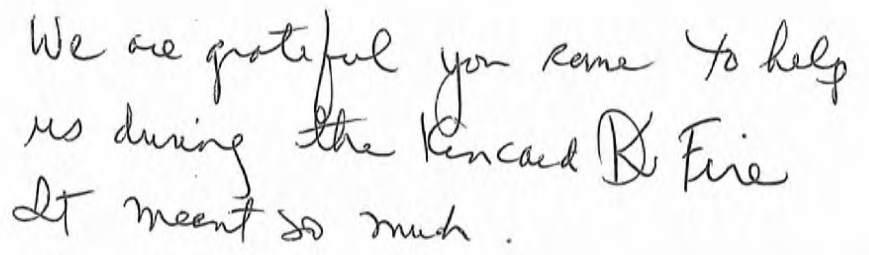 We are grateful you came to help
us during the Kincaed Fire
It meant so much.